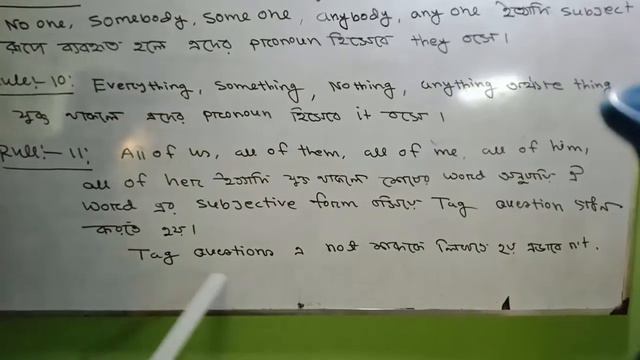 No one, somebody, some one, anybody, any one ইত্যাদি subject
রূপে ব্যবহৃত হলে এদের pronoun হিসেবে they বসে।
Rule:- 10: Everything, something, Nothing, anything অর্থাৎ thing
যুক্ত থাকলে এদের pronoun হিসেবে it বসে।
Rule:- 11: All of us, all of them, all of me, all of him,
all of her ইত্যাদি যুক্ত থাকলে শেষের word অনুযায়ী ঐ
word এর subjective form বসিয়ে Tag question গঠন
করতে হয়।
Tag questions এ not থাকলে লিখতে হয় এভাবে n't.